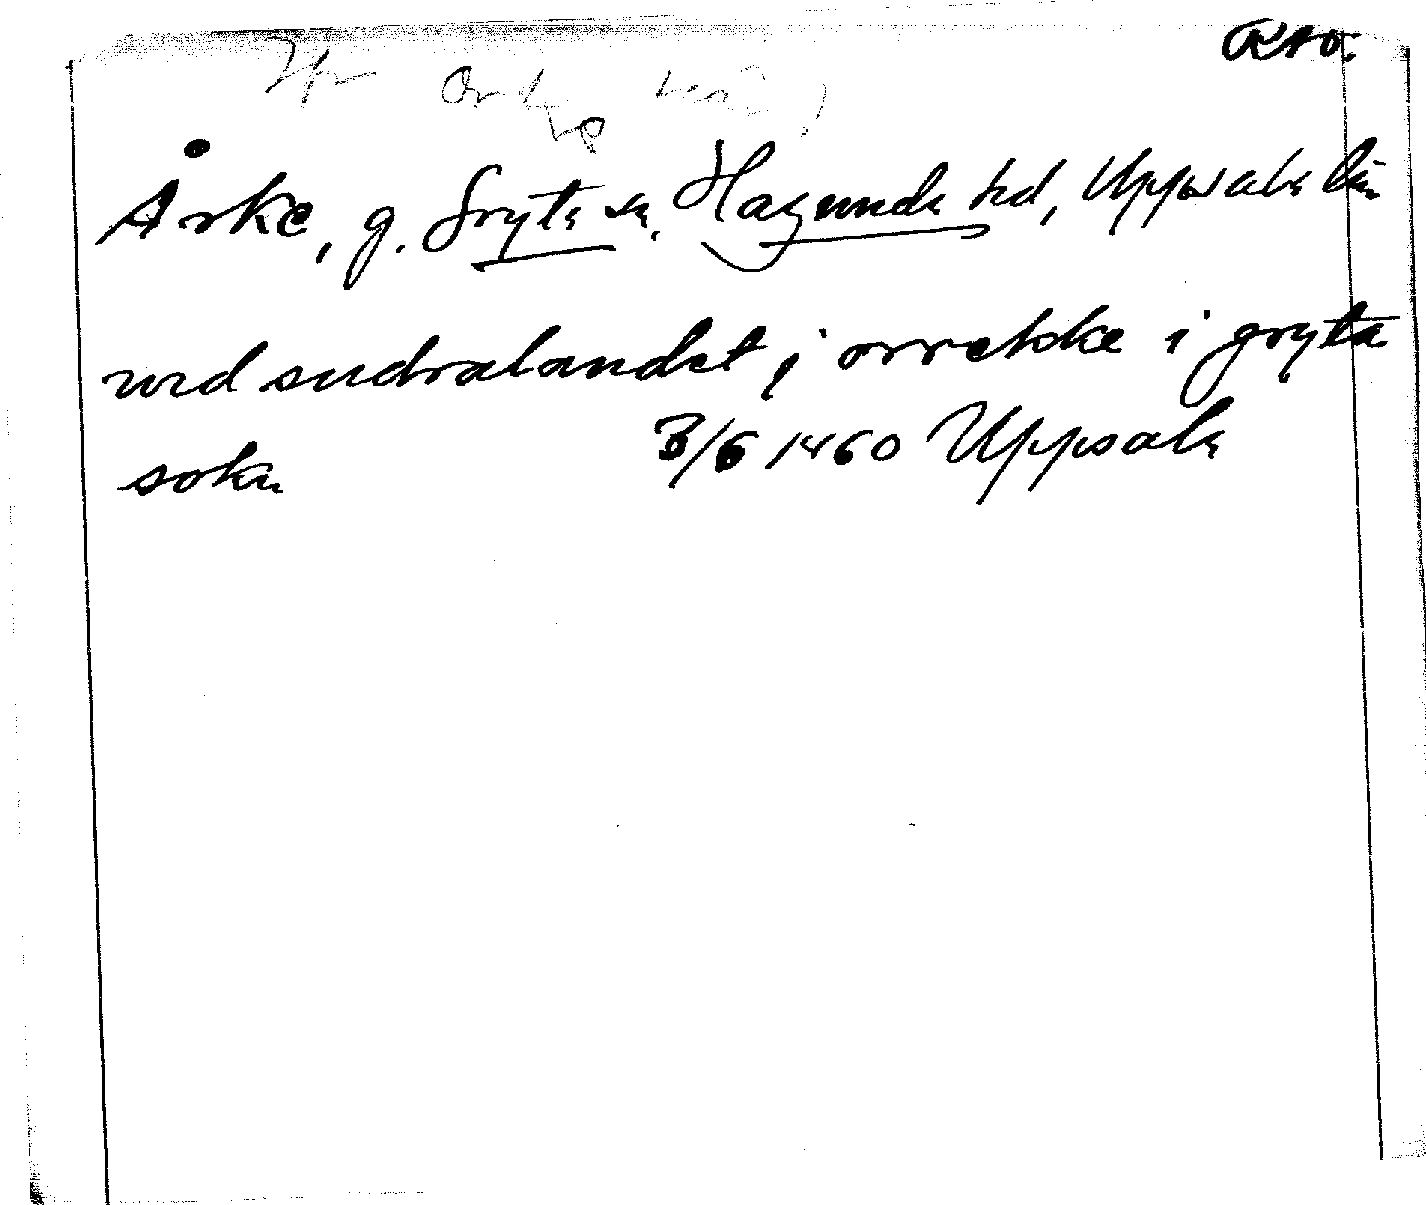 RAO.
Årke, g. Gryta sn. Hagunda hd, Uppsala län
wid sudralandet j orrekke i gryta
sokn 3/6 1460 Uppsala